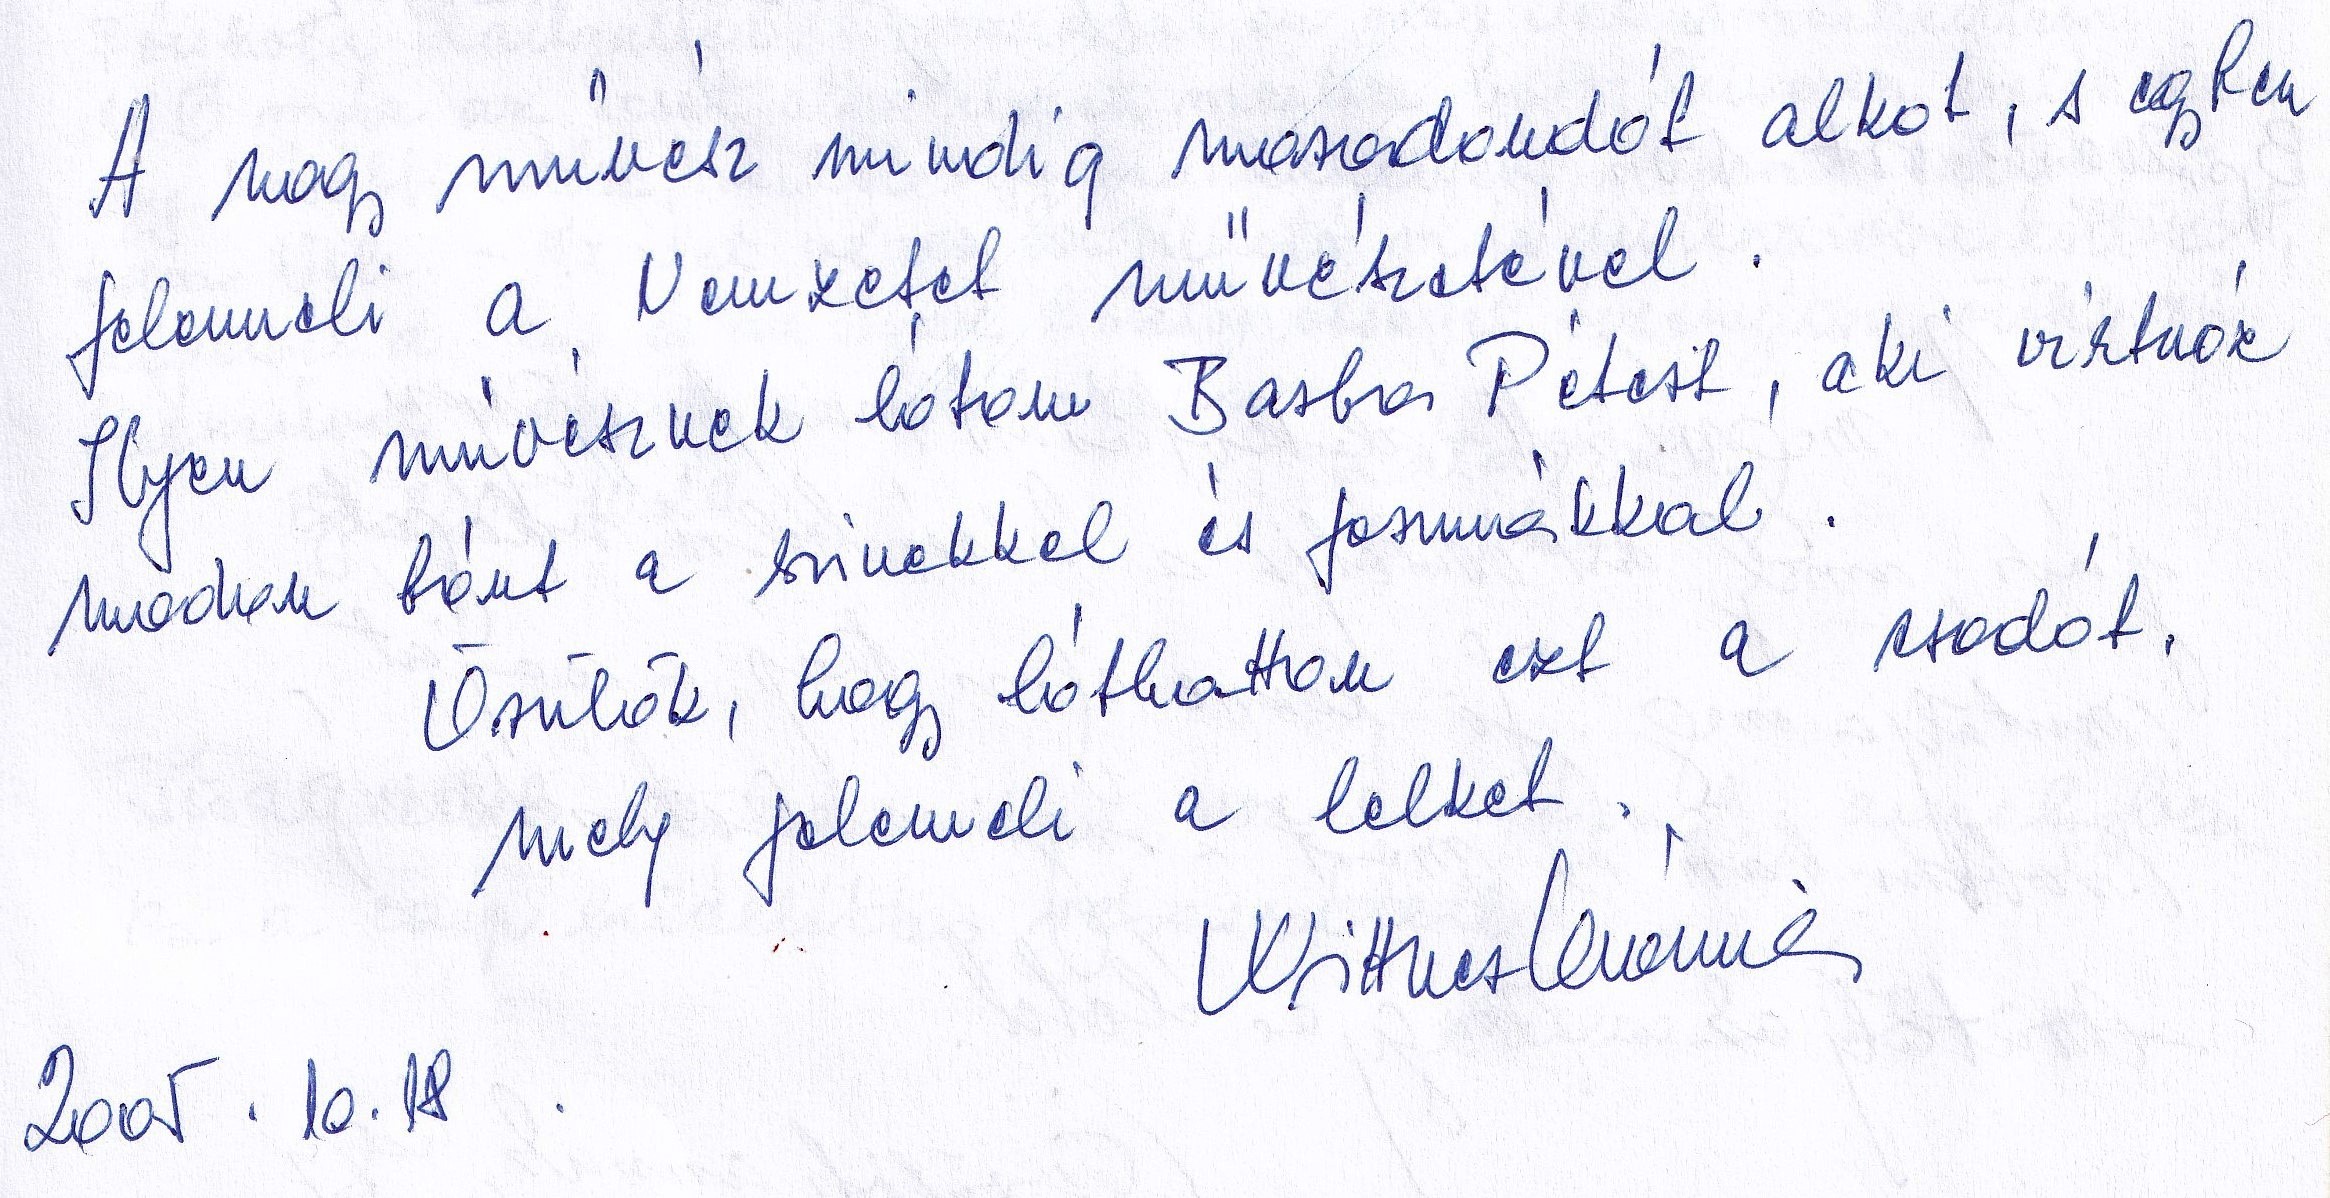 A nagy művész mindig maradandót alkot, s egyben
felemeli a Nemzetet művészetével.
Ilyen művésznek látom Basba Pétert, aki virtuóz
modon bánt a szinekkel és formákkal.
Örülök, hogy láthattam ezt a csodát,
mely felemeli a lelket.
Wittner Mária
2005. 10. 18.